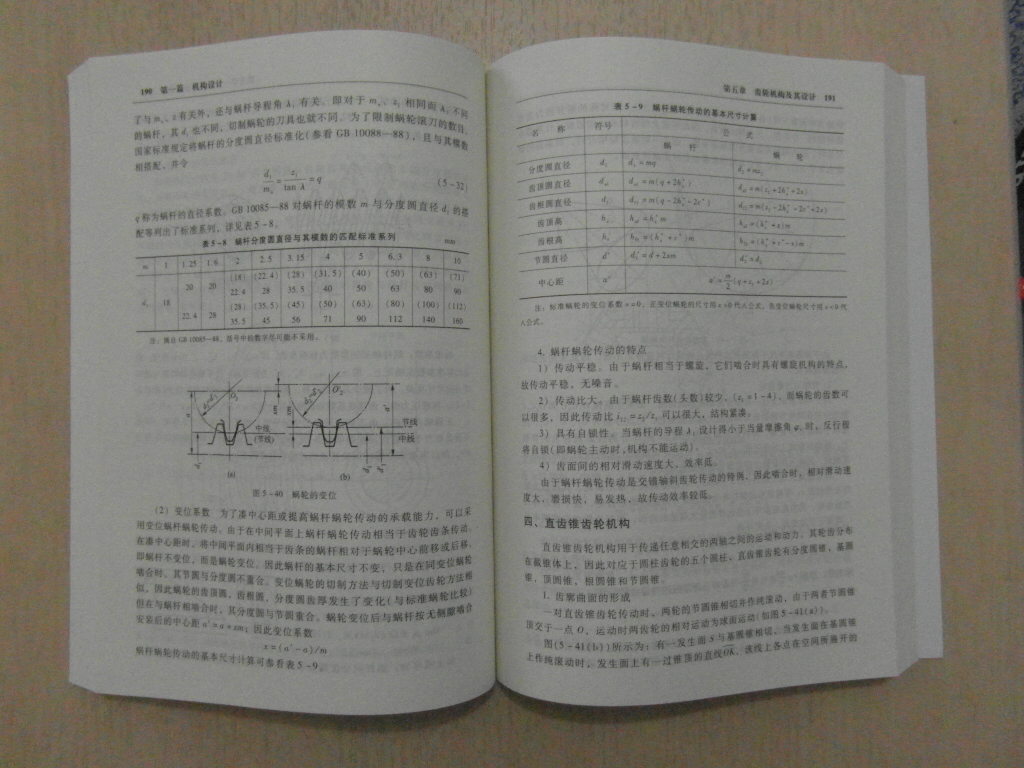 190 第一篇 机构设计
了与m、z有关外，还与蜗杆导程角λ₁有关。即对于m、z₁相同而λ₁不同
的蜗杆，其d₁也不同，切制蜗轮的刀具也就不同。为了限制蜗轮滚刀的数目，
国家标准规定将蜗杆的分度圆直径标准化(参看GB 10088—88)，且与其模数
相搭配，并令
= = q (5-32)
q称为蜗杆的直径系数。GB 10085—88对蜗杆的模数m与分度圆直径d₁的搭
配等列出了标准系列，详见表5-8。
表5-8 蜗杆分度圆直径与其模数的匹配标准系列 mm
m 1 1.25 1.6 2 2.5 3.15 4 5 6.3 8 10
(18) (22.4) (28) (31.5) (40) (50) (63) (71)
20 20 22.4 28 35.5 40 50 63 80 90
d₁ 18 (28) (35.5) (45) (50) (63) (80) (100) (112)
22.4 28 35.5 45 56 71 90 112 140 160
注：摘自GB 10085—88，括号中的数字尽可能不采用。
O₂
中线
(节线)
O'₂
节线
中线
(a) (b)
图5-40 蜗轮的变位
(2) 变位系数 为了凑中心距或提高蜗杆蜗轮传动的承载能力，可以采
用变位蜗杆蜗轮传动。由于在中间平面上蜗杆蜗轮传动相当于齿轮齿条传动，
在凑中心距时，将中间平面内相当于齿条的蜗杆相对于蜗轮中心前移或后移，
即蜗杆不变位，而是蜗轮变位。因此蜗杆的基本尺寸不变，只是在同变位蜗轮
啮合时，其节圆与分度圆不重合。变位蜗轮的切制方法与切制变位齿轮方法相
似，因此蜗轮的齿顶圆，齿根圆，分度圆齿厚发生了变化(与标准蜗轮比较)
但在与蜗杆相啮合时，其分度圆与节圆重合。蜗轮变位后与蜗杆按无侧隙啮合
安装后的中心距a'=a+xm；因此变位系数
x=(a'-a)/m
蜗杆蜗轮传动的基本尺寸计算可参看表5-9。
第五章 齿轮机构及其设计 191
表5-9 蜗杆蜗轮传动的基本尺寸计算
名 称 符号 公 式
蜗 杆 蜗 轮
分度圆直径 d₁ d₁=mq d₂=mz₂
齿顶圆直径
齿根圆直径
齿顶高
齿根高
节圆直径 d'
中心距 a'
注：标准蜗轮的变位系数x=0，正变位蜗轮的尺寸用x>0代入公式，负变位蜗轮尺寸用x<0代
入公式。
4. 蜗杆蜗轮传动的特点
1) 传动平稳。由于蜗杆相当于螺旋，它们啮合时具有螺旋机构的特点，
故传动平稳，无噪音。
2) 传动比大。由于蜗杆齿数(头数)较少，(z₁=1~4)，而蜗轮的齿数可
以很多，因此传动比i₁₂=z₂/z₁可以很大，结构紧凑。
3) 具有自锁性。当蜗杆的导程λ₁设计得小于当量摩擦角φᵥ时，反行程
将自锁(即蜗轮主动时，机构不能运动)。
4) 齿面间的相对滑动速度大，效率低。
由于蜗杆蜗轮传动是交错轴斜齿轮传动的特例，因此啮合时，相对滑动速
度大，磨损快，易发热，故传动效率较低。
四、直齿锥齿轮机构
直齿锥齿轮机构用于传递任意相交的两轴之间的运动和动力，其轮齿分布
在截锥体上，因此对应于圆柱齿轮的五个圆柱，直齿锥齿轮有分度圆锥、基圆
锥，顶圆锥，根圆锥和节圆锥。
1. 齿廓曲面的形成
一对直齿锥齿轮传动时，两轮的节圆锥相切并作纯滚动，由于两者节圆锥
顶交于一点O，运动时两齿轮的相对运动为球面运动(如图5-41(a))。
图(5-41(b))所示为：有一发生面S与基圆锥相切，当发生面在基圆锥
上作纯滚动时，发生面上有一过锥顶的直线OK，该线上各点在空间所展开的